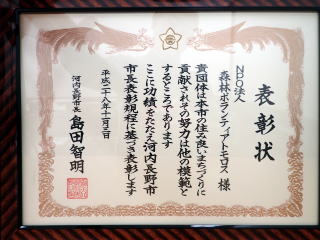 表彰状
NPO法人
森林ボランティアトモロス 様
貴団体は本市の住み良いまちづくりに
貢献されその努力は他の模範と
するところであります
ここに功績をたたえ河内長野市
市長表彰規程に基づき表彰します
平成二十八年十一月三日
河内長野市長 島田智明